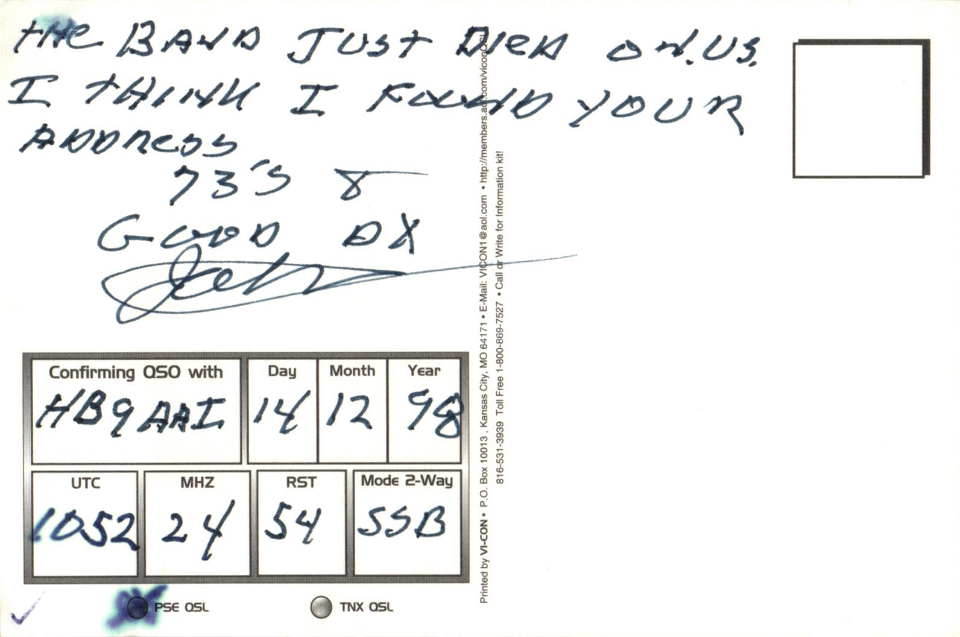 THE BAND JUST DIED ON. US.
I THINK I FOUND YOUR
ADDRESS
73'S &
GOOD DX
John
Confirming QSO with
HB9AAI
Day
14
Month
12
Year
98
UTC
1052
MHZ
24
RST
54
Mode 2-Way
SSB
PSE QSL
TNX QSL
Printed by VI-CON • P.O. Box 10013 , Kansas City, MO 64171 • E-Mail: VICON1@aol.com • http://members.aol.com/vicon
816-531-3939 Toll Free 1-800-869-7527 • Call or Write for Information kit!